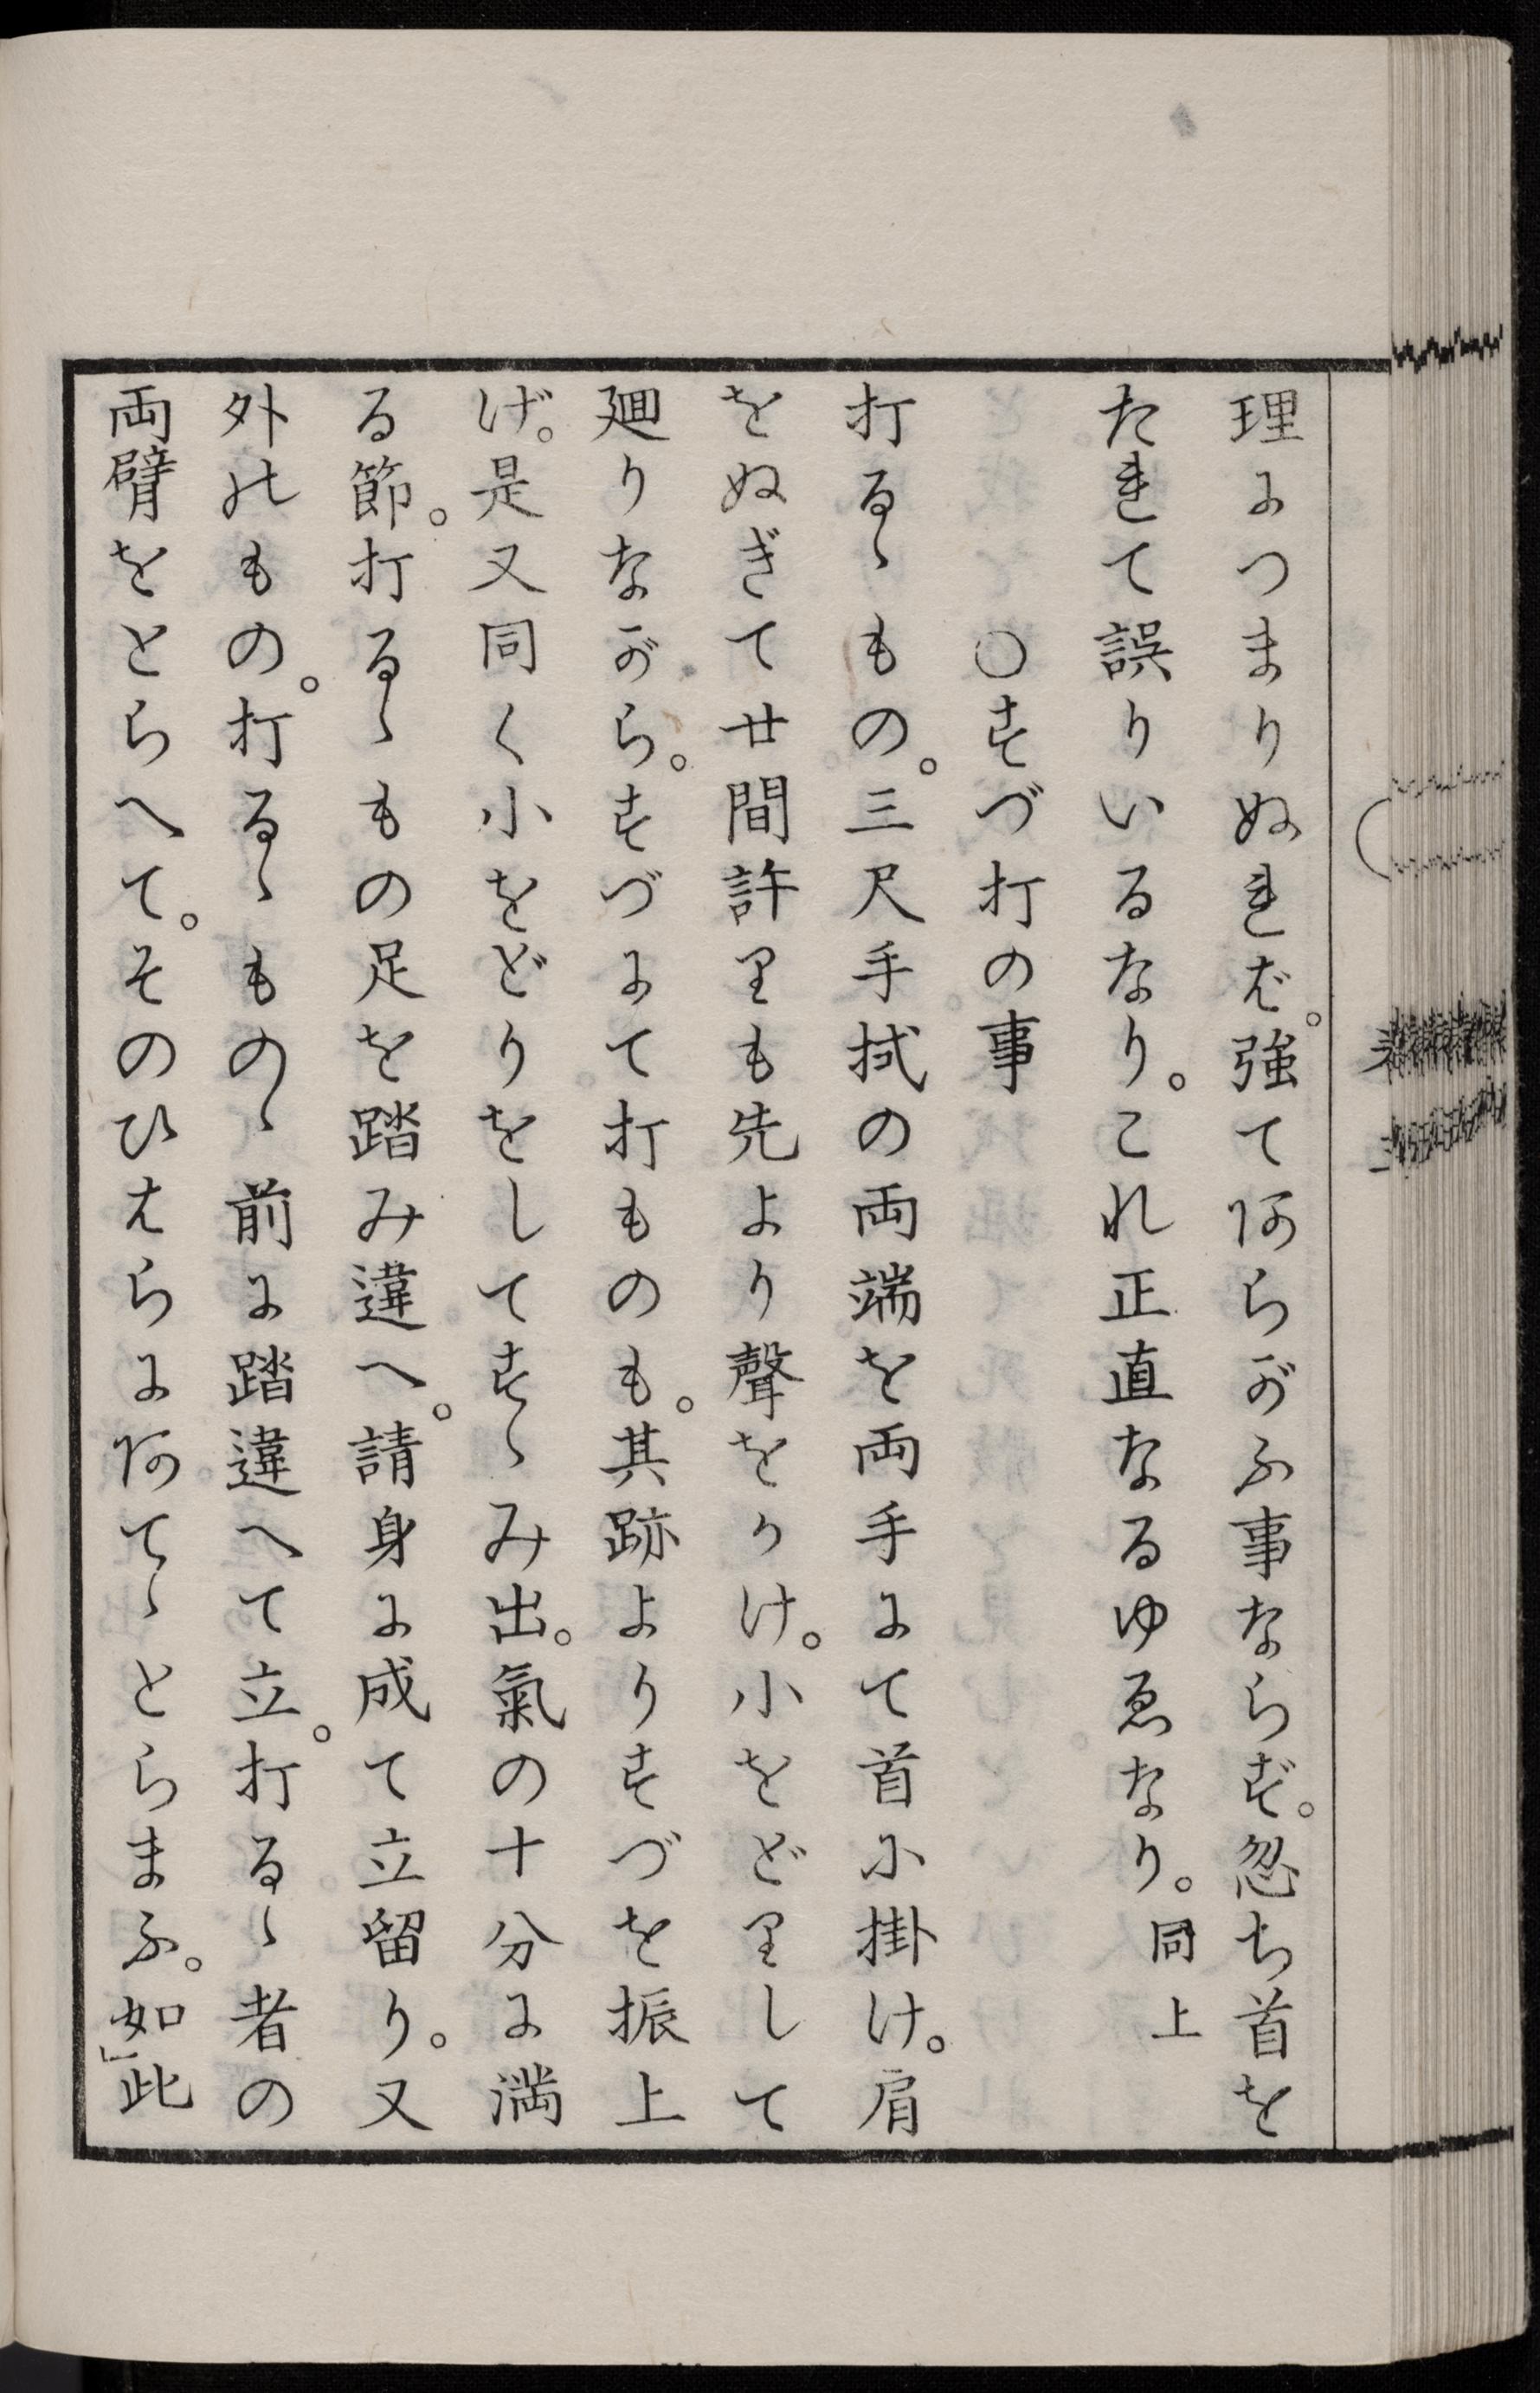 理につまりぬれば。強てあらがふ事ならず。忽ち首を
たれて誤りいるなり。これ正直なるゆゑなり。同上
○すづ打の事
打るゝもの。三尺手拭の両端を両手にて首に掛け。肩
をぬぎて廿間許りも先より聲をかけ。小をどりして
廻りながら。すづにて打ものも。其跡よりすづを振上
げ。是又同く小をどりをしてすゝみ出。氣の十分に満
る節。打るゝもの足を踏み違へ。請身に成て立留り。又
外のもの。打るゝものゝ前に踏違へて立。打るゝ者の
両臂をとらへて。そのひはらにあてゝとらまふ。如此